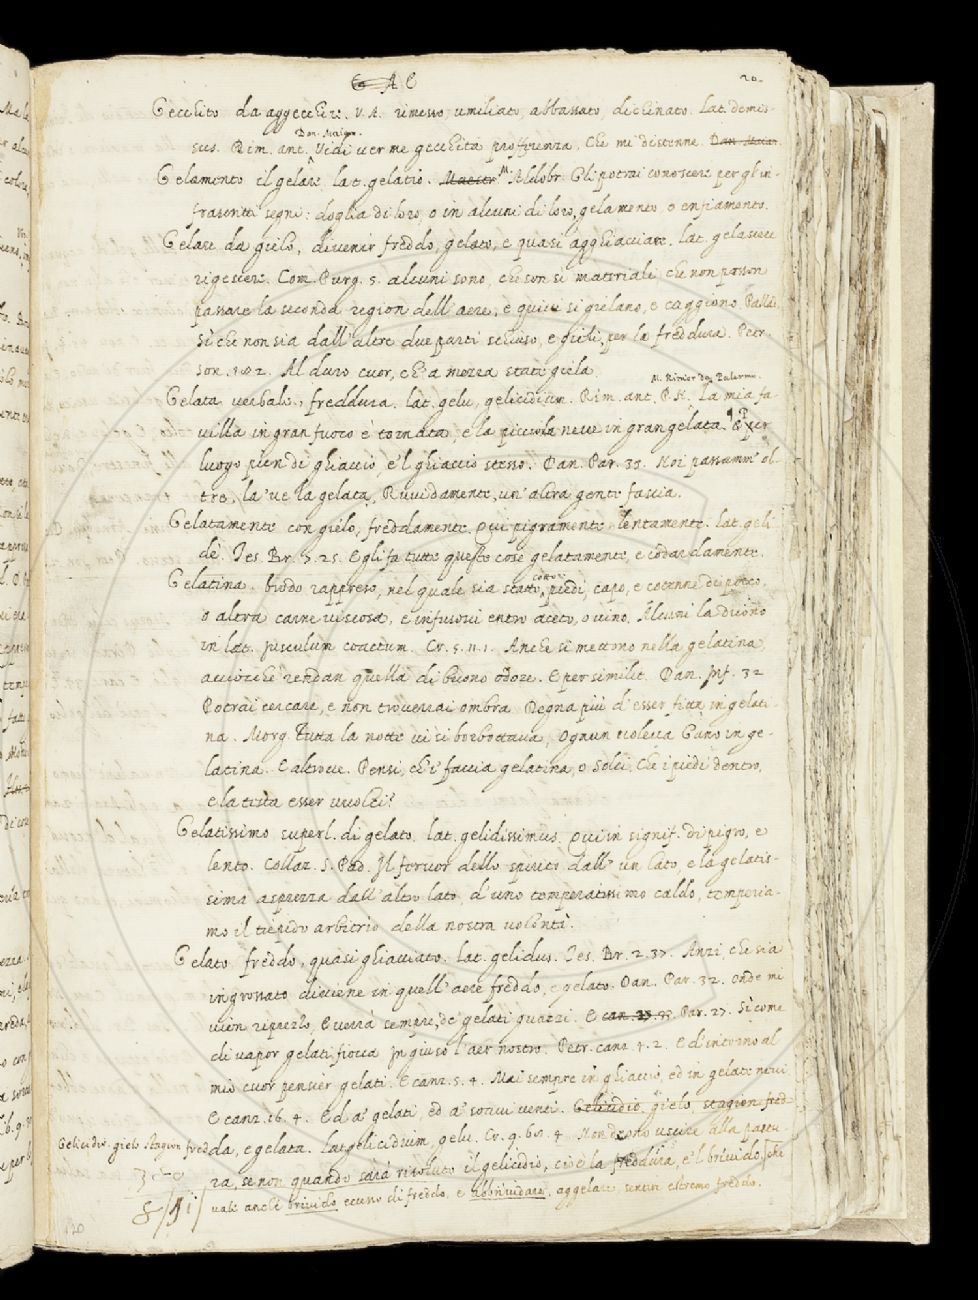 G A E 20.
Gecchito da aggecchire. V.A. rimesso, umiliato, abbassato, dichinato. lat. demis-
sus. Rim. ant. Dan. Maian. Vidi ver me gecchita profferenza, Che mi distenne. Dan. Maian.
Gelamento il gelare. lat. gelatio. Maestr. M. Aldobr. Gli potrai conoscere per gl'in-
frascritti segni: doglia di loro, o in alcuni di loro, gelamento, o enfiamento.
Gelare da gielo, divenir freddo, gelato, e quasi agghiacciare. lat. gelascere
rigescere. Com. Purg. 5. alcuni sono, che son sì materiali, che non posson
passare la seconda region dell'aere, e quivi si gielano, e caggiono. Pallad.
Sì che non sia dall'altre due parti schiuso, e gieli, per la freddura. Petr.
son. 182. Al duro cuor, ch'a mezza state giela.
Gelata verbale, freddura. lat. gelu, gelicidium. Rim. ant. P. N. M. Rinier da Palermo. La mia fa-
villa in gran fuoco è tornata, e la piccola neve in gran gelata. ¶ E per
luogo pien di ghiaccio, e 'l ghiaccio stesso. Dan. Par. 33. Noi passamm' ol-
tre, la 've la gelata, Ruvidamente un' altra gente fascia.
Gelatamente con gielo, freddamente. Qui pigramente, lentamente. lat. geli-
de. Tes. Br. 5. 25. Egli fa tutte queste cose gelatamente, e codardamente.
Gelatina. brodo rappreso, nel quale sia stato cotto piedi, capo, e cotenne di porco,
o altra carne viscosa, e infusovi entro aceto, o vino. Alcuni la dicono
in lat. jusculum coactum. Cr. 5. 11. 1. Anche si mettono nella gelatina,
acciocchè rendan quella di buono odore. E per similit. Dan. Inf. 32
Potrai cercare, e non troverrai ombra Degna più d'esser fitta in gelati-
na. Morg. Tutta la notte vi si borbottava, Ognun voleva Gano in ge-
latina. E altrove. Pensi, ch'i' faccia gelatina, o Solci, Che i piedi dentro,
e la testa esser vuolci?
Gelatissimo superl. di gelato. lat. gelidissimus. Qui in signif. di pigro, e
lento. Collaz. S. Pad. Il fervor dello spirito dall' un lato, e la gelatis-
sima asprezza dall' altro lato, d'uno temperatissimo caldo, temperia-
mo il tiepido arbitrio della nostra volontà.
Gelato freddo, quasi ghiacciato. lat. gelidus. Tes. Br. 2. 37. Anzi, che sia
ingrossato, diviene in quell' aere freddo, e gelato. Dan. Par. 32. onde mi
vien riprezzo, E verrà sempre, de' gelati guazzi. E can. 33. Par. 27. Sì come
di vapor gelati fiocca In giuso l'aer nostro. Petr. canz. 4. 2. E d'intorno al
mio cuor pensier gelati. E canz. 5. 4. Mai sempre in ghiaccio, ed in gelate nevi
E canz. 16. 4. Ed a' gelati, ed a' soavi venti. Gelicidio, gielo, stagion fred-
Gelicidio. gielo, stagion fredda, e gelata. lat. gelicidium, gelu. Cr. 9. 68. 4 Non deono uscire alla pastu-
ra, se non quando sarà risoluto il gelicidio, cioè la freddura, e 'l brivido, che
vale anche brivido, eccesso di freddo, e abbrividare, aggelare, sentire estremo freddo.